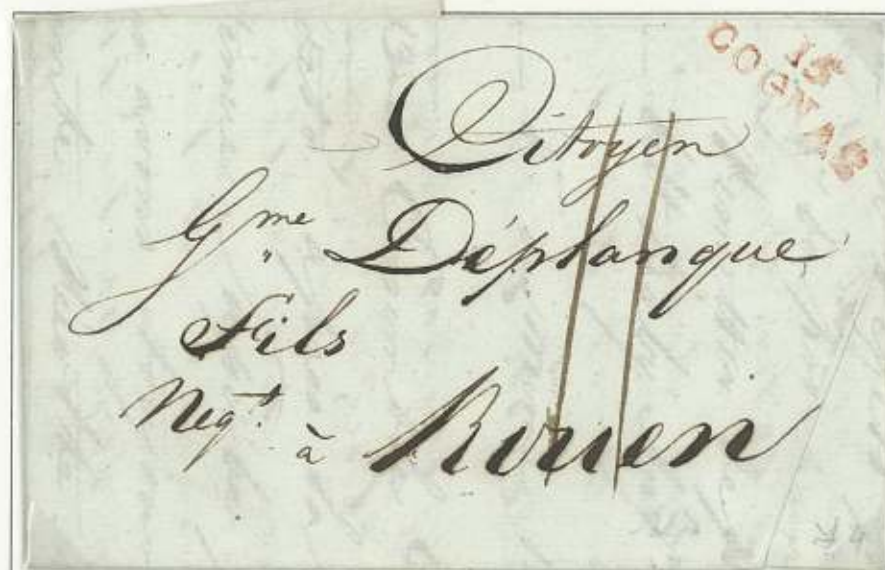 15
COGNAC
Citoyen
Gme Déplanque
Fils
Negt. à Rouen